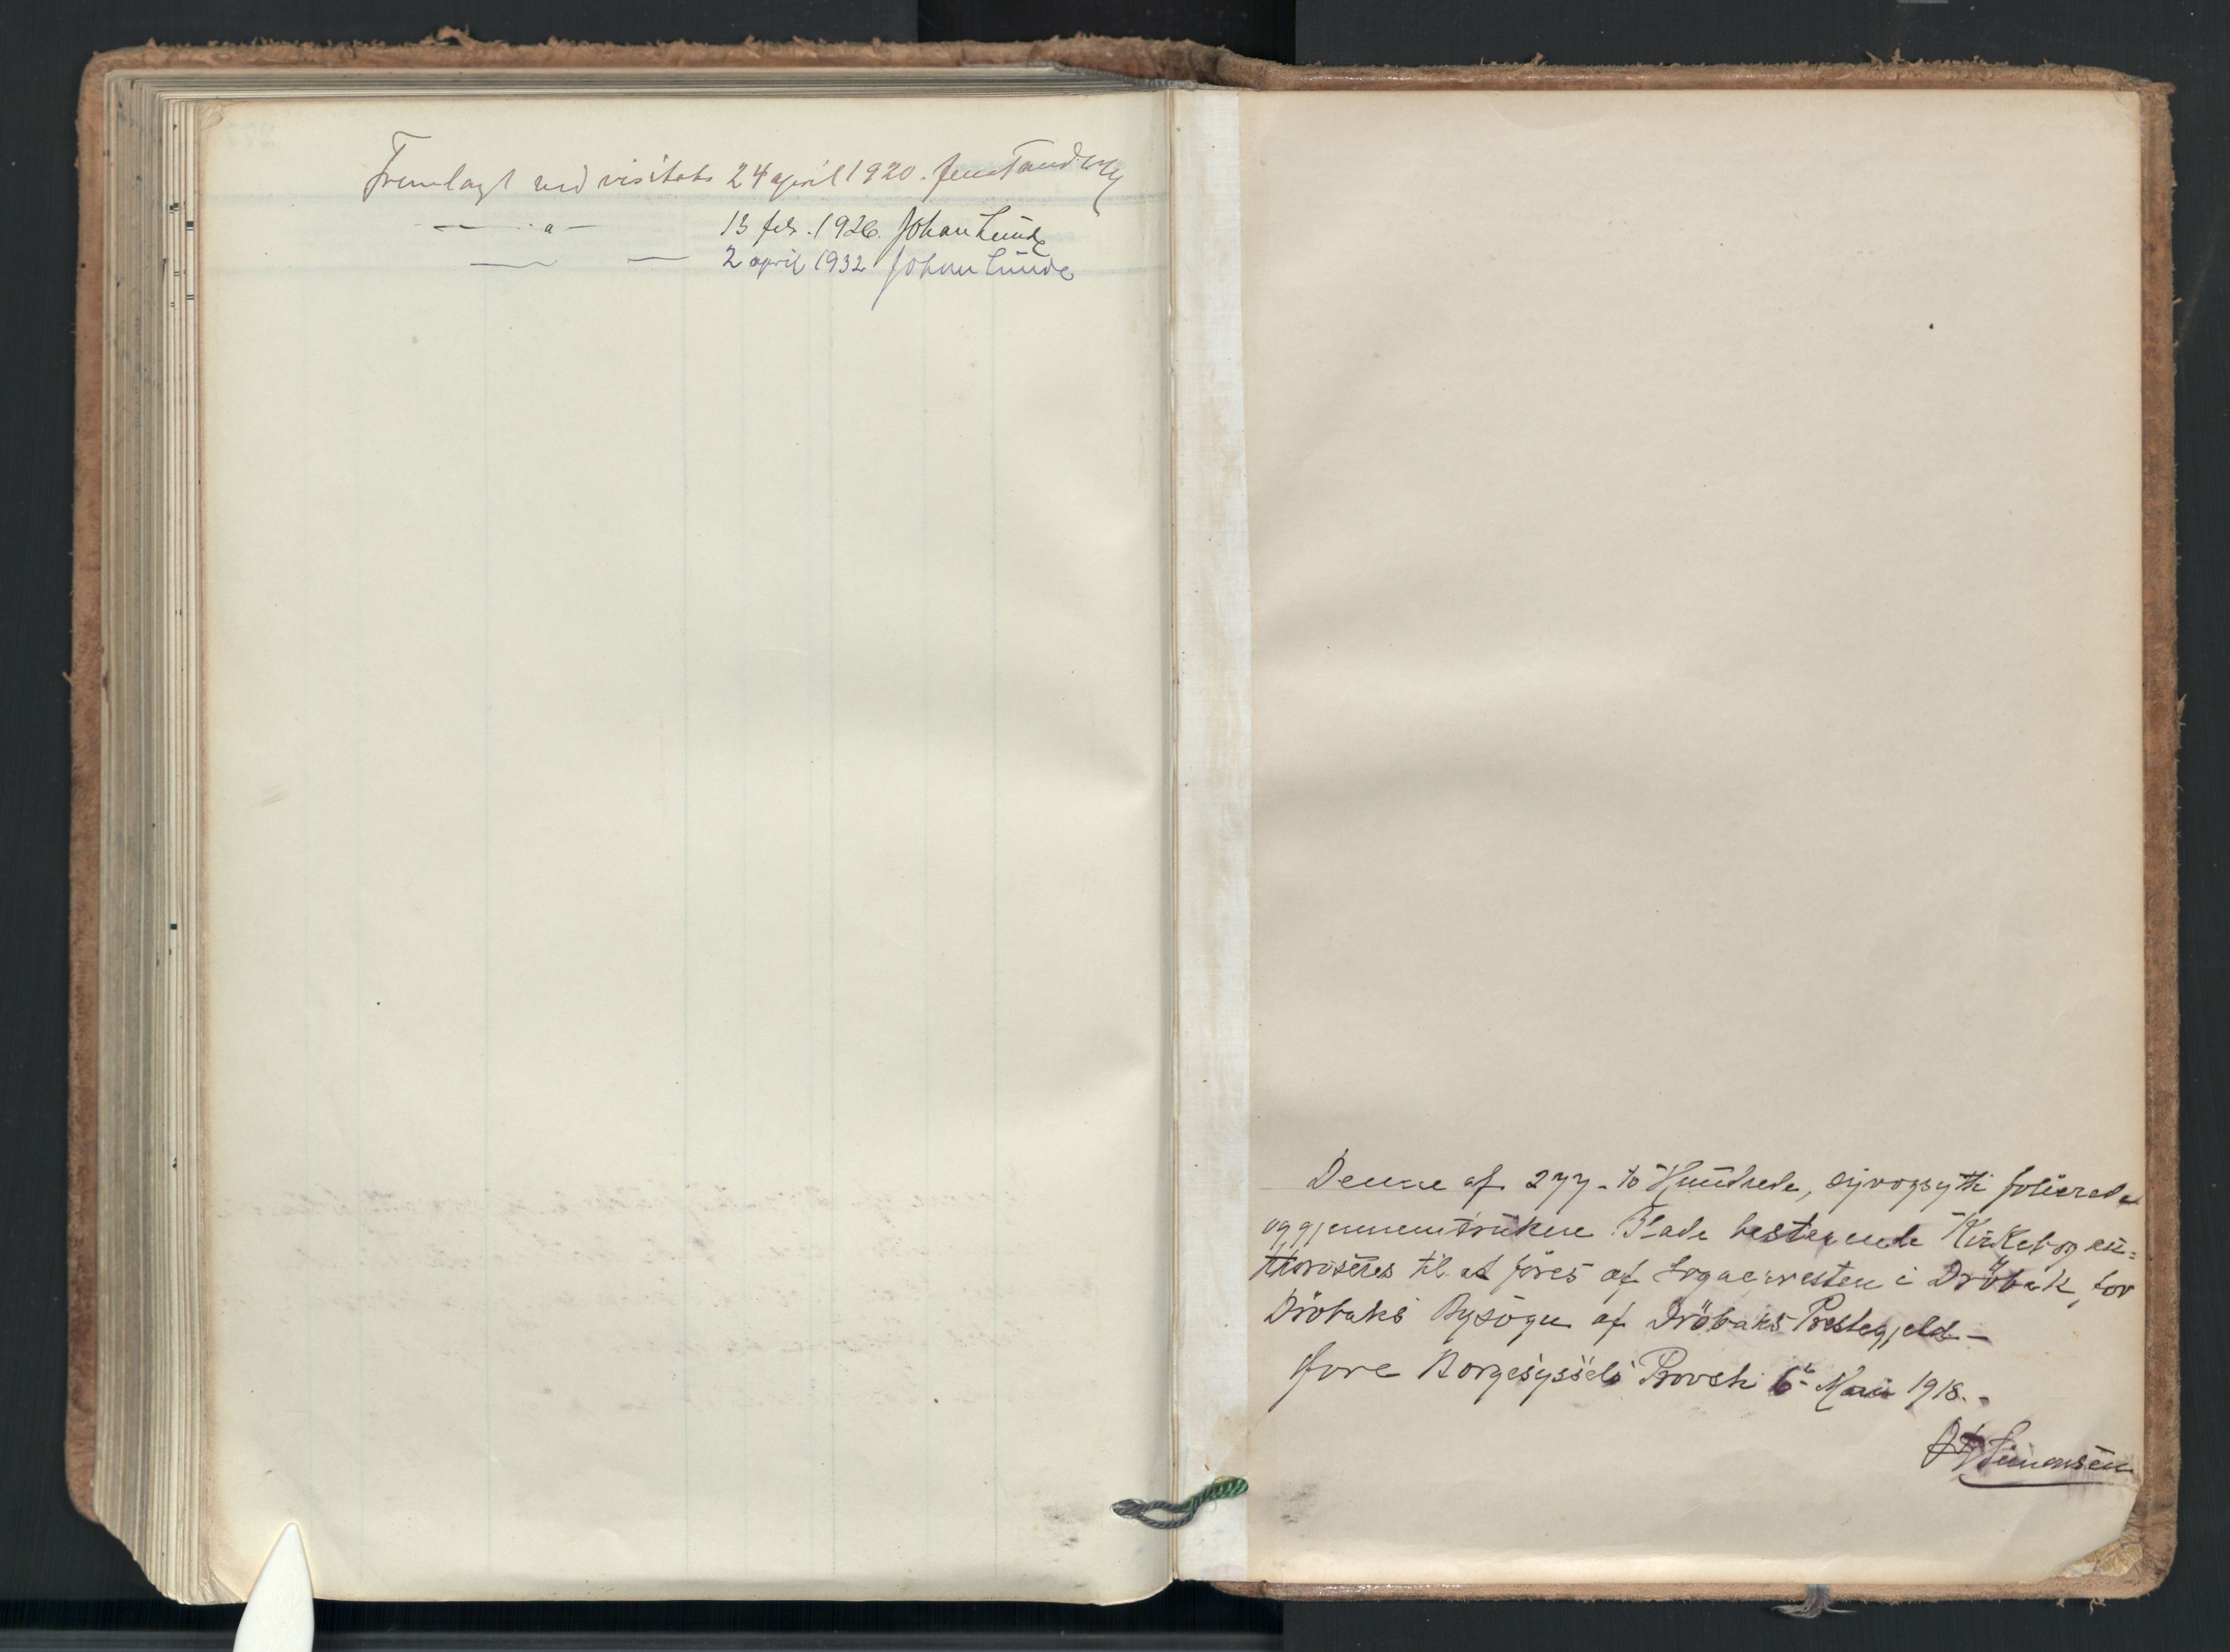 Fremlagt ved visitats 24 april 1920. Jens Tandberg
— " — 13 feb. 1926. Johan Lunde
— — 2 april 1932 Johan Lunde
Denne af 277 - to Hundrede, syvogsytti folierede
og gjennemtrukne Blade bestaaende Kirkebog au=
thoriseres til at föres af Sognepresten i Dröbak, for
Dröbaks Bysogn af Dröbaks Prestegjeld -
Övre Borgesyssels Provsti 6te Mars 1918. -
Simonsen